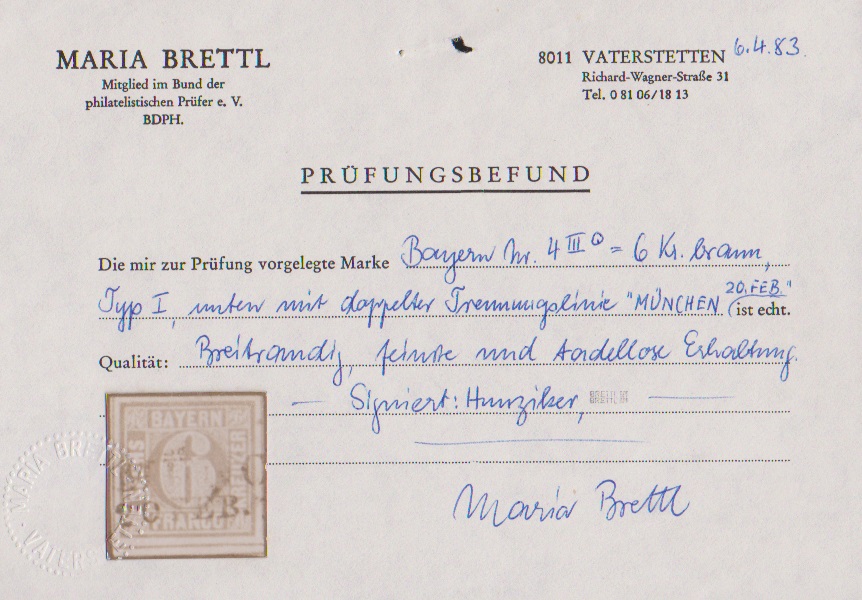 MARIA BRETTL
Mitglied im Bund der
philatelistischen Prüfer e. V.
BDPH.
8011 VATERSTETTEN 6.4.83.
Richard-Wagner-Straße 31
Tel. 0 81 06/18 13
PRÜFUNGSBEFUND
Die mir zur Prüfung vorgelegte Marke Bayern Nr. 4 III = 6 Kr. braun,
Typ I, unten mit doppelter Trennungslinie "MÜNCHEN 20. FEB." ist echt.
Qualität: Breitrandig, feinste und tadellose Erhaltung.
– Signiert: Hunziker, BRETTL –
BAYERN
6
FRANCO
20 EB.
Maria Brettl
MARIA BRETTL
VATERS